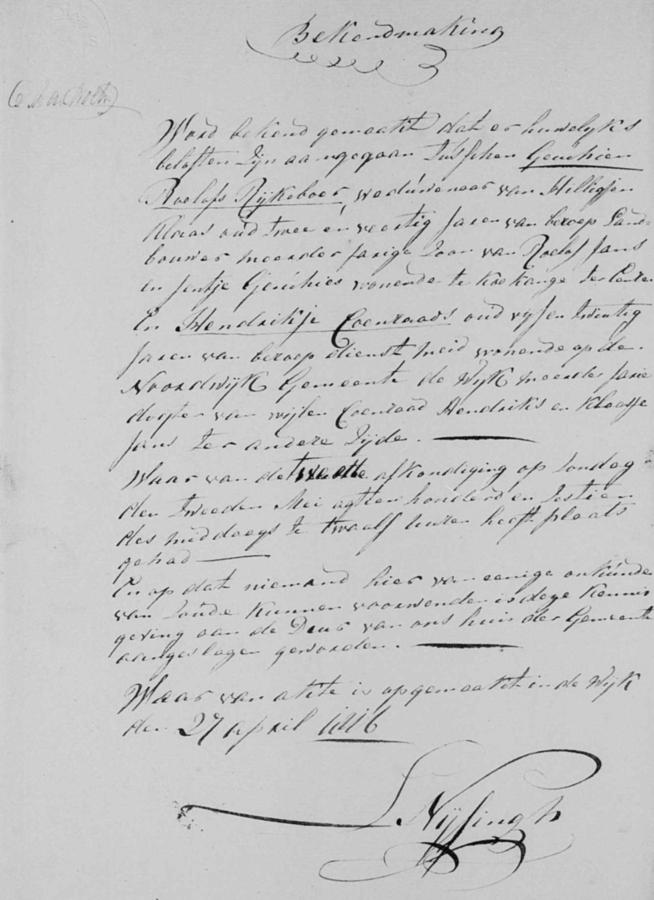 Bekendmaking
Word bekend gemaakt dat er huwelyks
beloften Zijn aangegaan Tusschen Geuchien
Roelofs Nijkeboer, weduwenaar van Hilligjen
Klaas oud twee en veertig Jaren van beroep Land-
bouwer meerder Jarige Zoon van Roelof Jans
en Jentje Geuchies wonende te Koekange ter Eenre
En Hendrikje Coenraads oud vyf en twintig
Jaren van beroep dienst meid wonende op de
Noordwijk Gemeente de Wijk meerder Jarie
dogter van wijlen Coenraad Hendriks en Klaasje
Jans ter andere Zijde.
Waar van de tweede afkondiging op Zondag
den tweeden Mei agtien honderd en Zestien
des middaegs te twaalf uuren heeft plaats
gehad
En op dat niemand hier van eenige onkunde
van Zoude kunnen voorwenden is deze Kennis
geving aan de Deur van ons huis der Gemeente
aangeslagen geworden.
Waar van akte is opgemaakt in de Wijk
den 27 april 1816
L Nijsingh